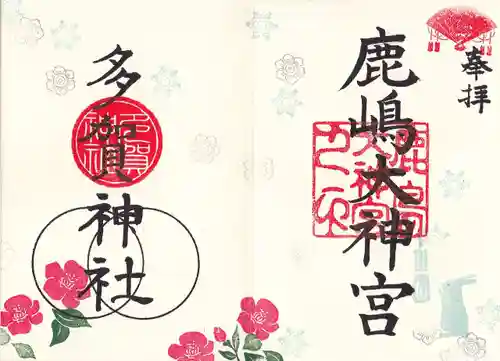 奉拝
鹿嶋大神宮
多賀神社